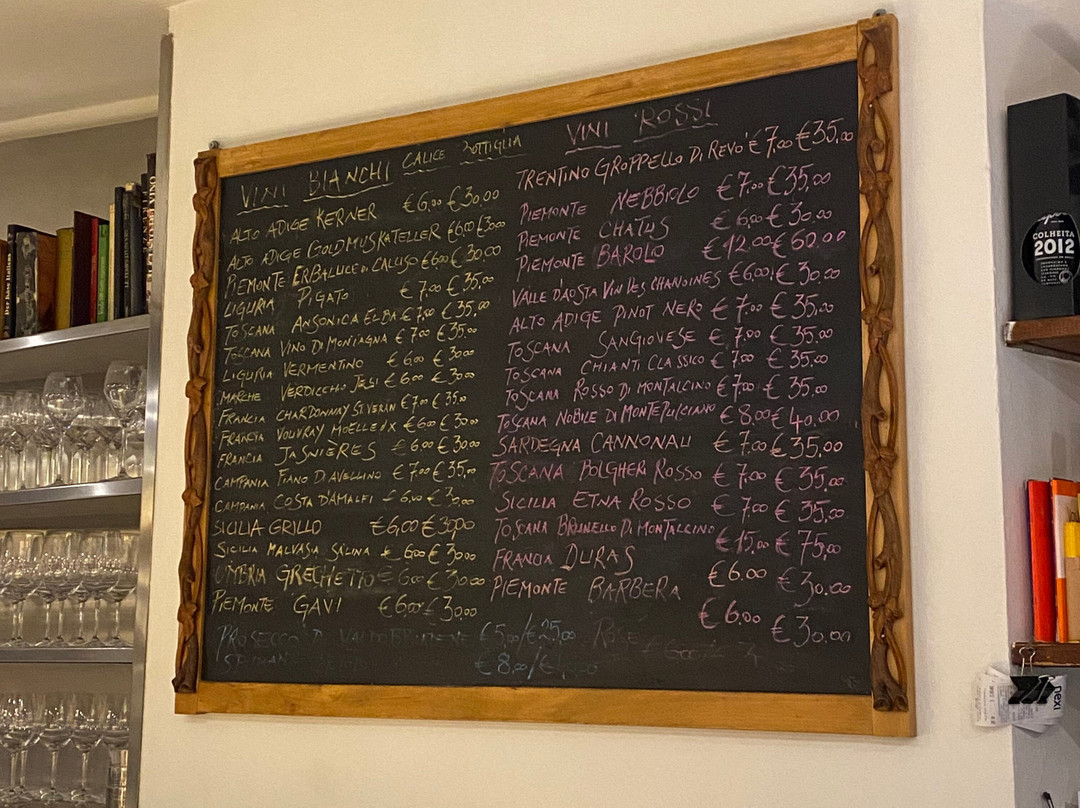 VINI BIANCHI CALICE BOTTIGLIA
ALTO ADIGE KERNER €6,00 €30,00
ALTO ADIGE GOLDMUSKATELLER €6,00 €30,00
PIEMONTE ERBALUCE DI CALUSO €6,00 €30,00
LIGURIA PIGATO €7,00 €35,00
TOSCANA ANSONICA ELBA €7,00 €35,00
TOSCANA VINO DI MONTAGNA €7,00 €35,00
LIGURIA VERMENTINO €6,00 €30,00
MARCHE VERDICCHIO JESI €6,00 €30,00
FRANCIA CHARDONNAY ST VERAN €7,00 €35,00
FRANCIA VOUVRAY MOELLEUX €6,00 €30,00
FRANCIA JASNIÈRES €6,00 €30,00
CAMPANIA FIANO DI AVELLINO €7,00 €35,00
CAMPANIA COSTA D'AMALFI €6,00 €30,00
SICILIA GRILLO €6,00 €30,00
SICILIA MALVASIA SALINA €6,00 €30,00
UMBRIA GRECHETTO €6,00 €30,00
PIEMONTE GAVI €6,00 €30,00
PROSECCO DI VALDOBBIADENE €5,00/€25,00
€8,00/
VINI ROSSI
TRENTINO GROPPELLO DI REVO' €7,00 €35,00
PIEMONTE NEBBIOLO €7,00 €35,00
PIEMONTE CHATUS €6,00 €30,00
PIEMONTE BAROLO €12,00 €60,00
VALLE D'AOSTA VIN DES CHANOINES €6,00 €30,00
ALTO ADIGE PINOT NERO €7,00 €35,00
TOSCANA SANGIOVESE €7,00 €35,00
TOSCANA CHIANTI CLASSICO €7,00 €35,00
TOSCANA ROSSO DI MONTALCINO €7,00 €35,00
TOSCANA NOBILE DI MONTEPULCIANO €8,00 €40,00
SARDEGNA CANNONAU €7,00 €35,00
TOSCANA BOLGHERI ROSSO €7,00 €35,00
SICILIA ETNA ROSSO €7,00 €35,00
TOSCANA BRUNELLO DI MONTALCINO €15,00 €75,00
FRANCIA DURAS €6,00 €30,00
PIEMONTE BARBERA €6,00 €30,00
ROSE €6,00
COLHEITA
2012
nexi